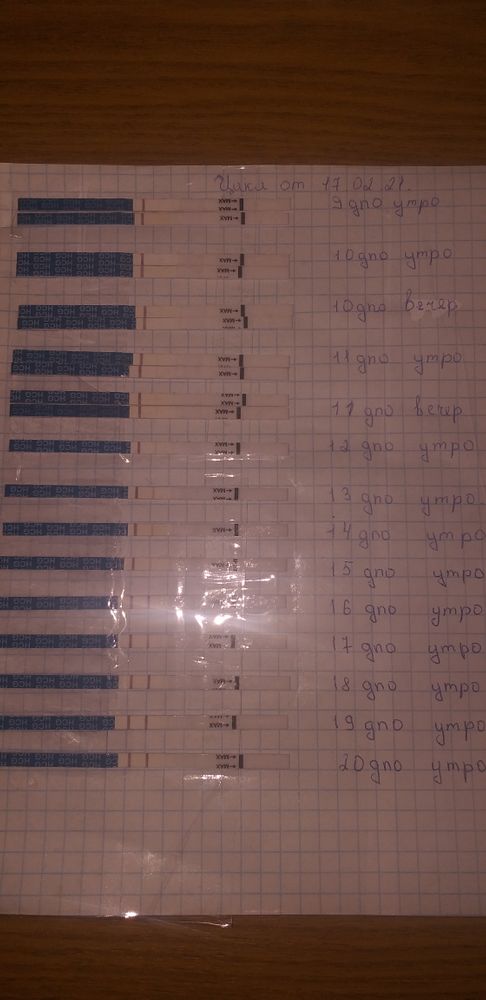 Цикл от 17.02.21.
9 дпо утро
10 дпо утро
10 дпо вечер
11 дпо утро
11 дпо вечер
12 дпо утро
13 дпо утро
14 дпо утро
15 дпо утро
16 дпо утро
17 дпо утро
18 дпо утро
19 дпо утро
20 дпо утро